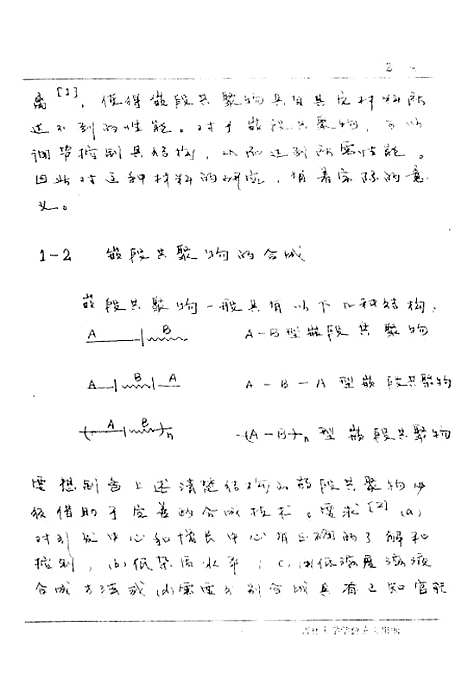 离[1]，使得嵌段共聚物具有其它材料所
达不到的性能。对于嵌段共聚物，可以
调节控制其结构，从而达到所需性能。
因此对这种材料的研究，有着实际的意
义。
1-2 嵌段共聚物的合成
嵌段共聚物一般具有以下几种结构：
A B A-B型嵌段共聚物
A B A A-B-A型嵌段共聚物
(A B)n (A-B)n型嵌段共聚物
要想制备上述清楚结构的嵌段共聚物必
须借助于完善的合成技术。要求[2] (a)
对引发中心和增长中心有正确的了解和
控制，(b)低杂质水平；(c)低浓度溶液
合成方法或(d)需要分别合成具有已知官能